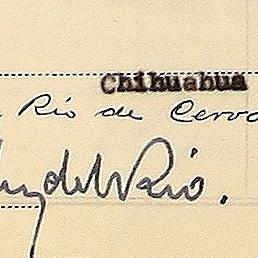 Chihuahua
Rio de Cerva
del Rio.